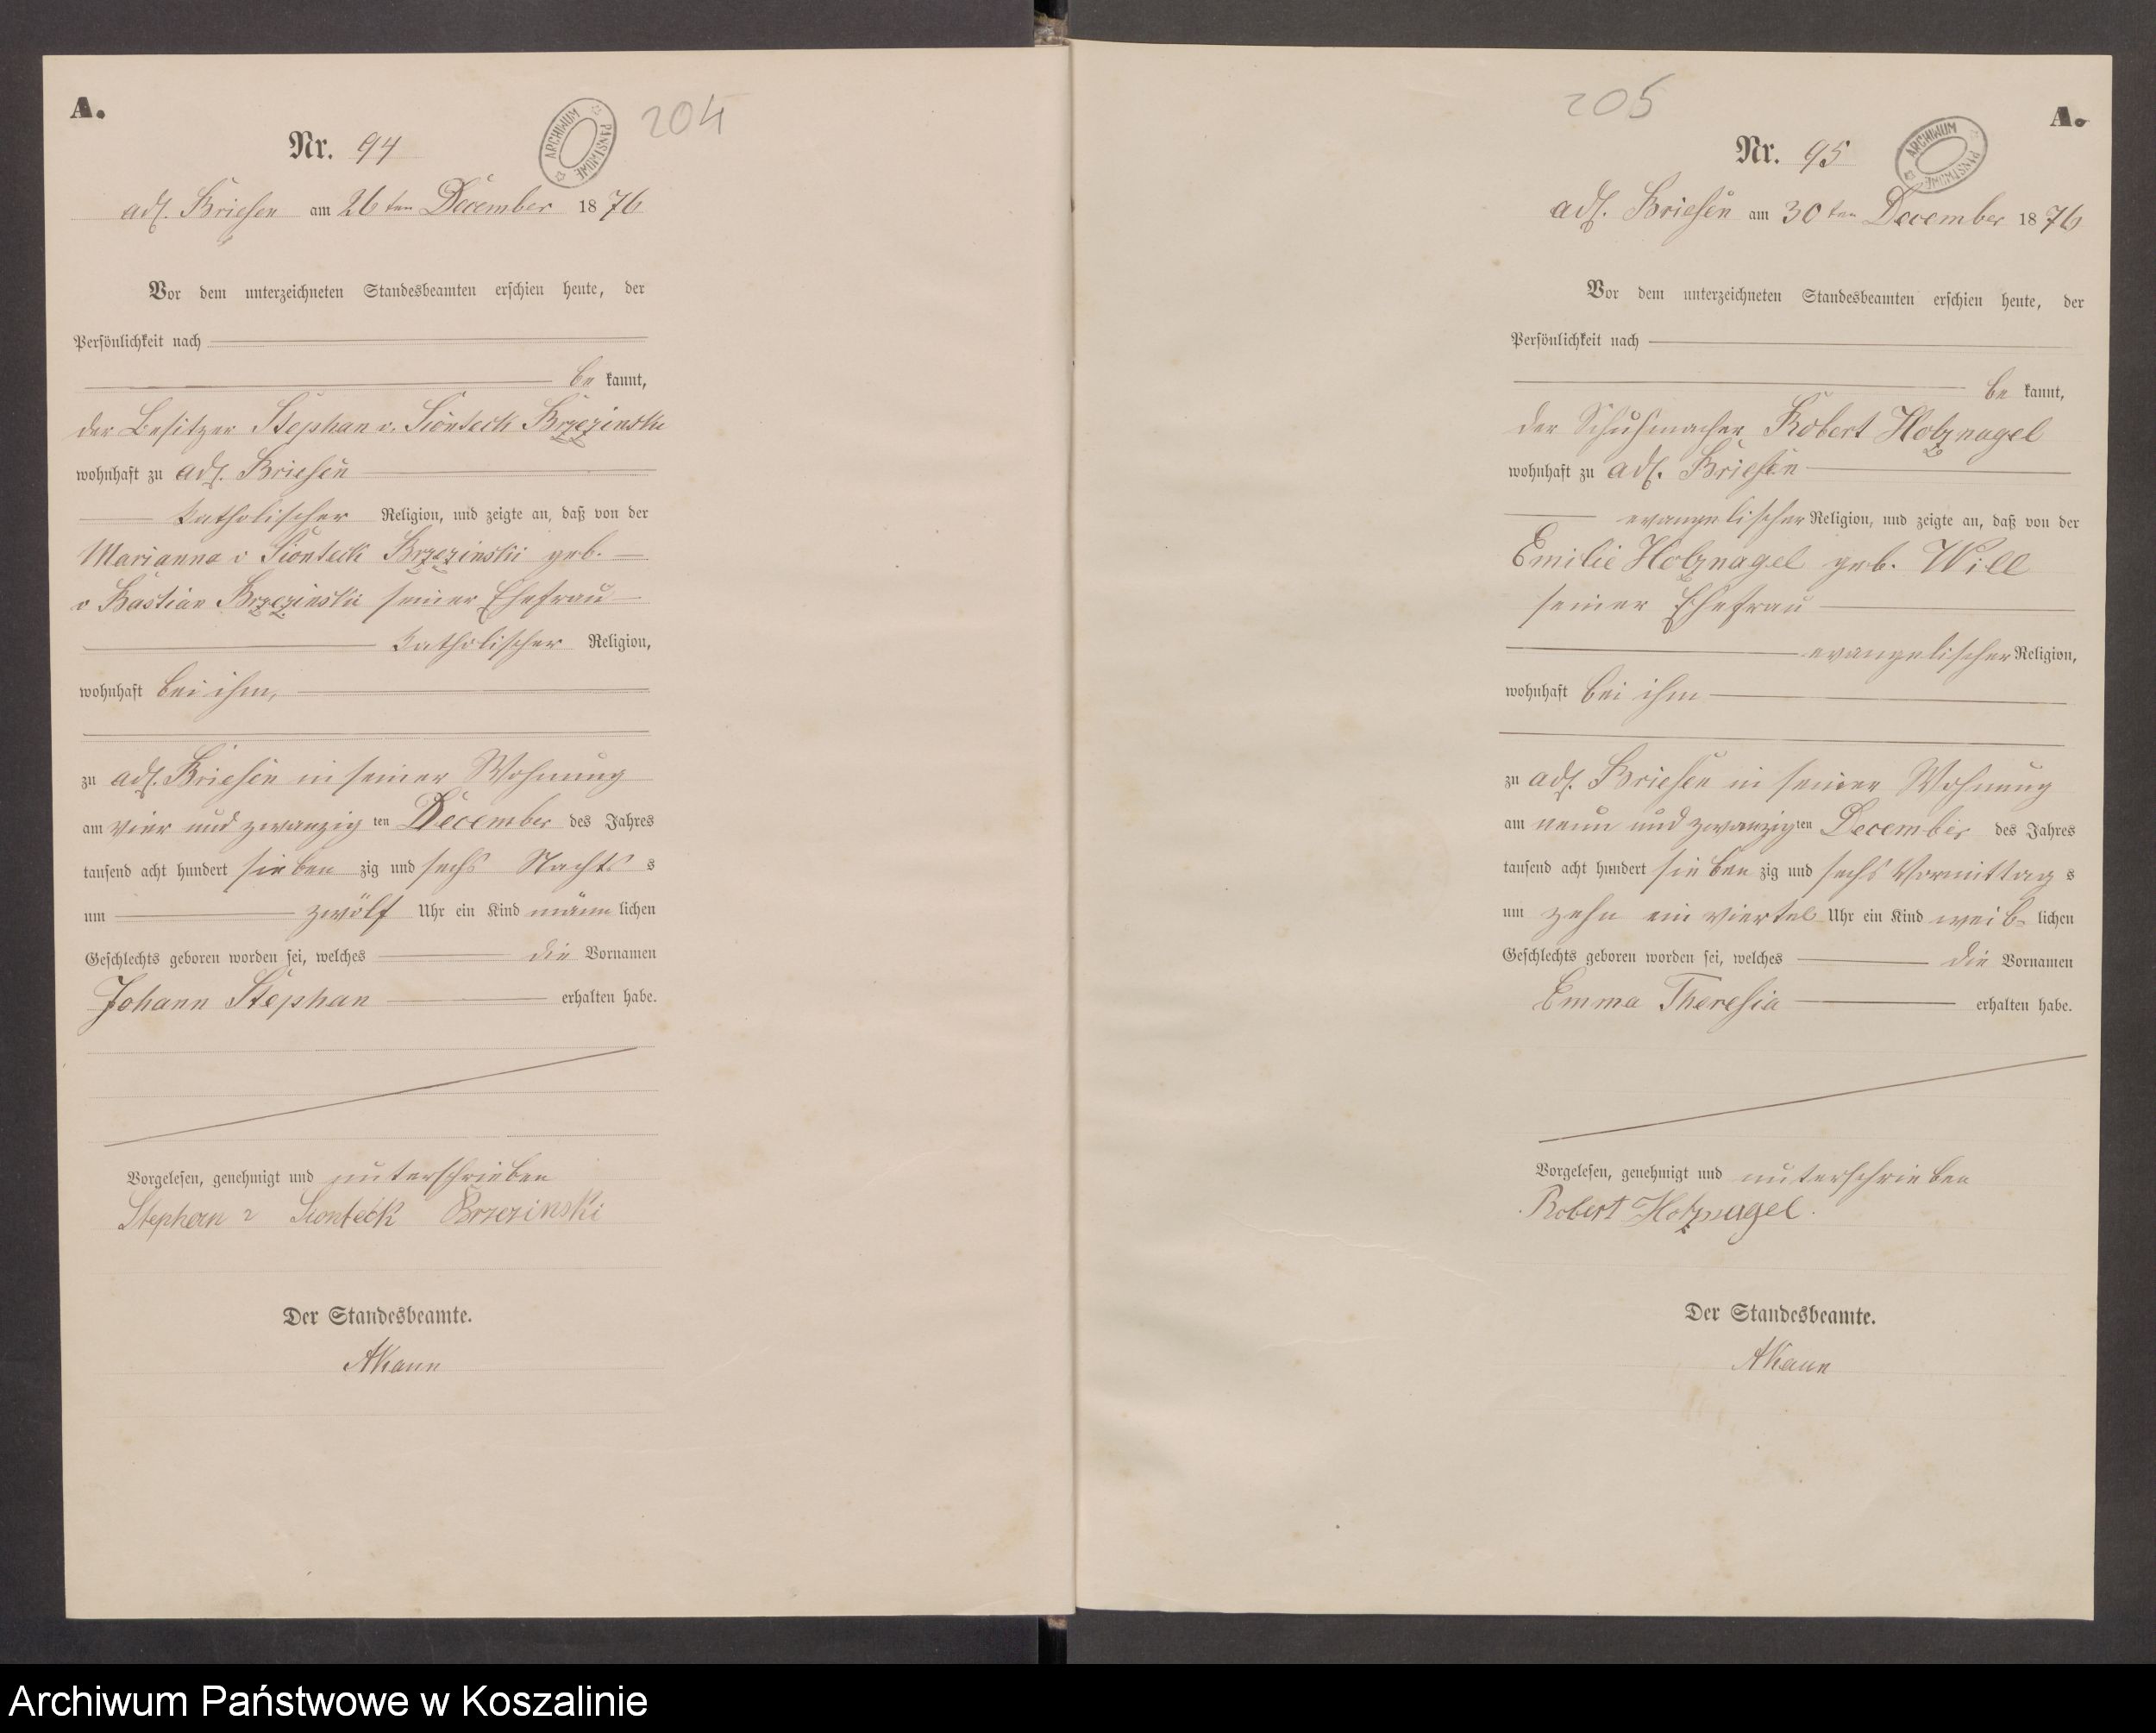 A.
204
Nr. 94
ARCHIWUM PAŃSTWOWE
adl. Briesen am 26ten December 1876
Vor dem unterzeichneten Standesbeamten erschien heute, der
Persönlichkeit nach
be kannt,
der Besitzer Stephan v. Sionteck Brzezinski
wohnhaft zu adl. Briesen
katholischer Religion, und zeigte an, daß von der
Marianna v Sionteck Brzezinski geb.
v Bastian Brzezinski seiner Ehefrau
katholischer Religion,
wohnhaft bei ihm,
zu adl. Briesen in seiner Wohnung
am vier und zwanzig ten December des Jahres
tausend acht hundert sieben zig und sechs Nachts s
um zwölf Uhr ein Kind männ lichen
Geschlechts geboren worden sei, welches die Vornamen
Johann Stephan erhalten habe.
Vorgelesen, genehmigt und unterschrieben
Stephan v Sionteck Brzezinski
Der Standesbeamte.
205
A.
Nr. 95
ARCHIWUM PAŃSTWOWE
adl. Briesen am 30ten December 1876
Vor dem unterzeichneten Standesbeamten erschien heute, der
Persönlichkeit nach
be kannt,
der Schuhmacher Robert Holznagel
wohnhaft zu adl. Briesen
evangelischer Religion, und zeigte an, daß von der
Emilie Holznagel geb. Will
seiner Ehefrau
evangelischer Religion,
wohnhaft bei ihm
zu adl. Briesen in seiner Wohnung
am neun und zwanzig ten December des Jahres
tausend acht hundert sieben zig und sechs Vormittag s
um zehn ein viertel Uhr ein Kind weib lichen
Geschlechts geboren worden sei, welches die Vornamen
Emma Theresia erhalten habe.
Vorgelesen, genehmigt und unterschrieben
Robert Holznagel.
Der Standesbeamte.
Archiwum Państwowe w Koszalinie